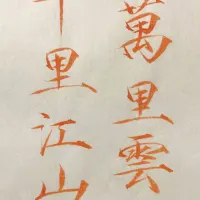 萬里雲
千里江山